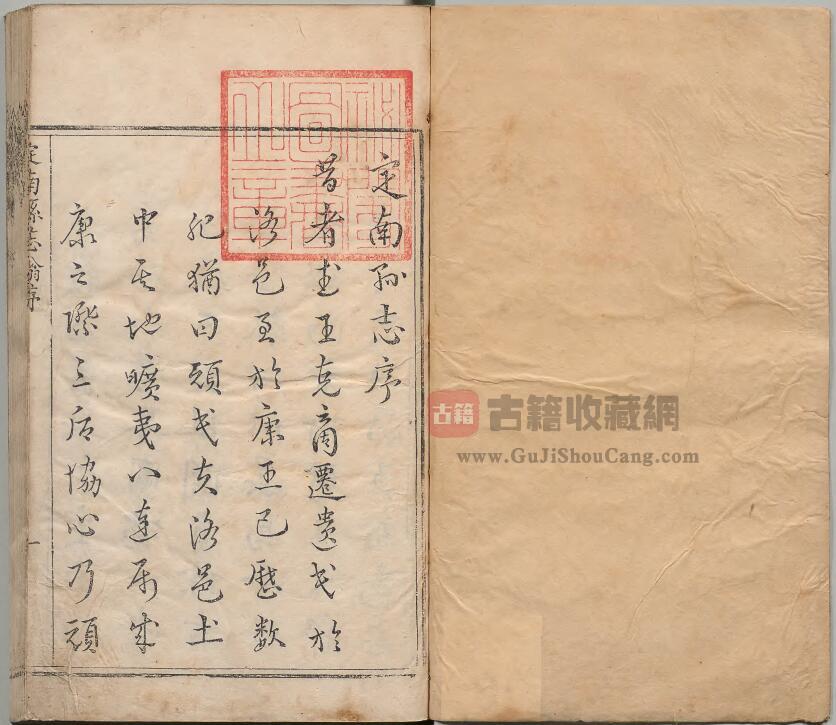 古籍 古籍收藏網
www.GuJiShouCang.com
秘閣
圖書
之章
定南縣志序
昔者武王克商遷遺民於
洛邑至於康王已歷數
紀猶曰頑民夫洛邑土
中其地曠夷八達成
康之際三后協心乃頑
定南縣志翁序
一